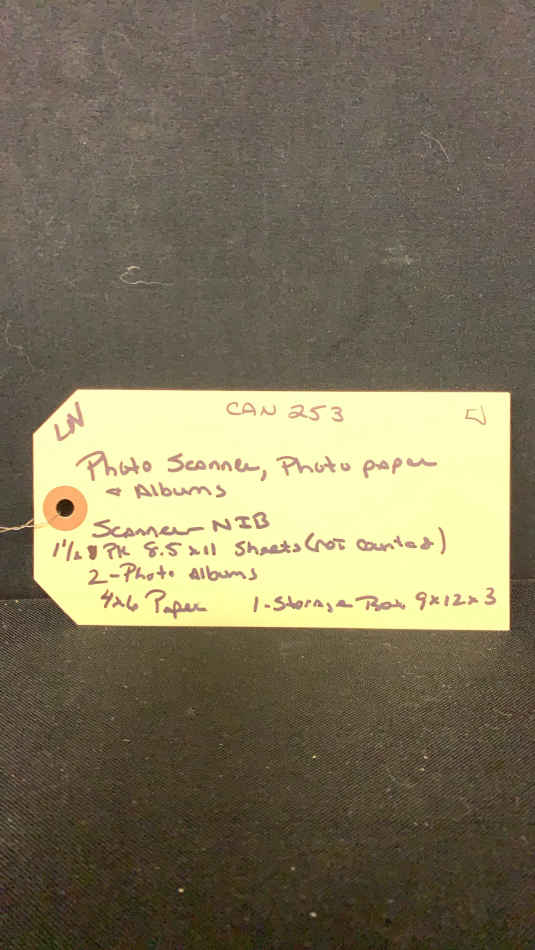 LN
CAN 253
Photo Scanner, Photo paper
& Albums
Scanner NIB
1 1/2 PK 8.5 x 11 Sheets (not counted)
2-Photo Albums
4x6 Paper 1-Storage Box 9x12x3